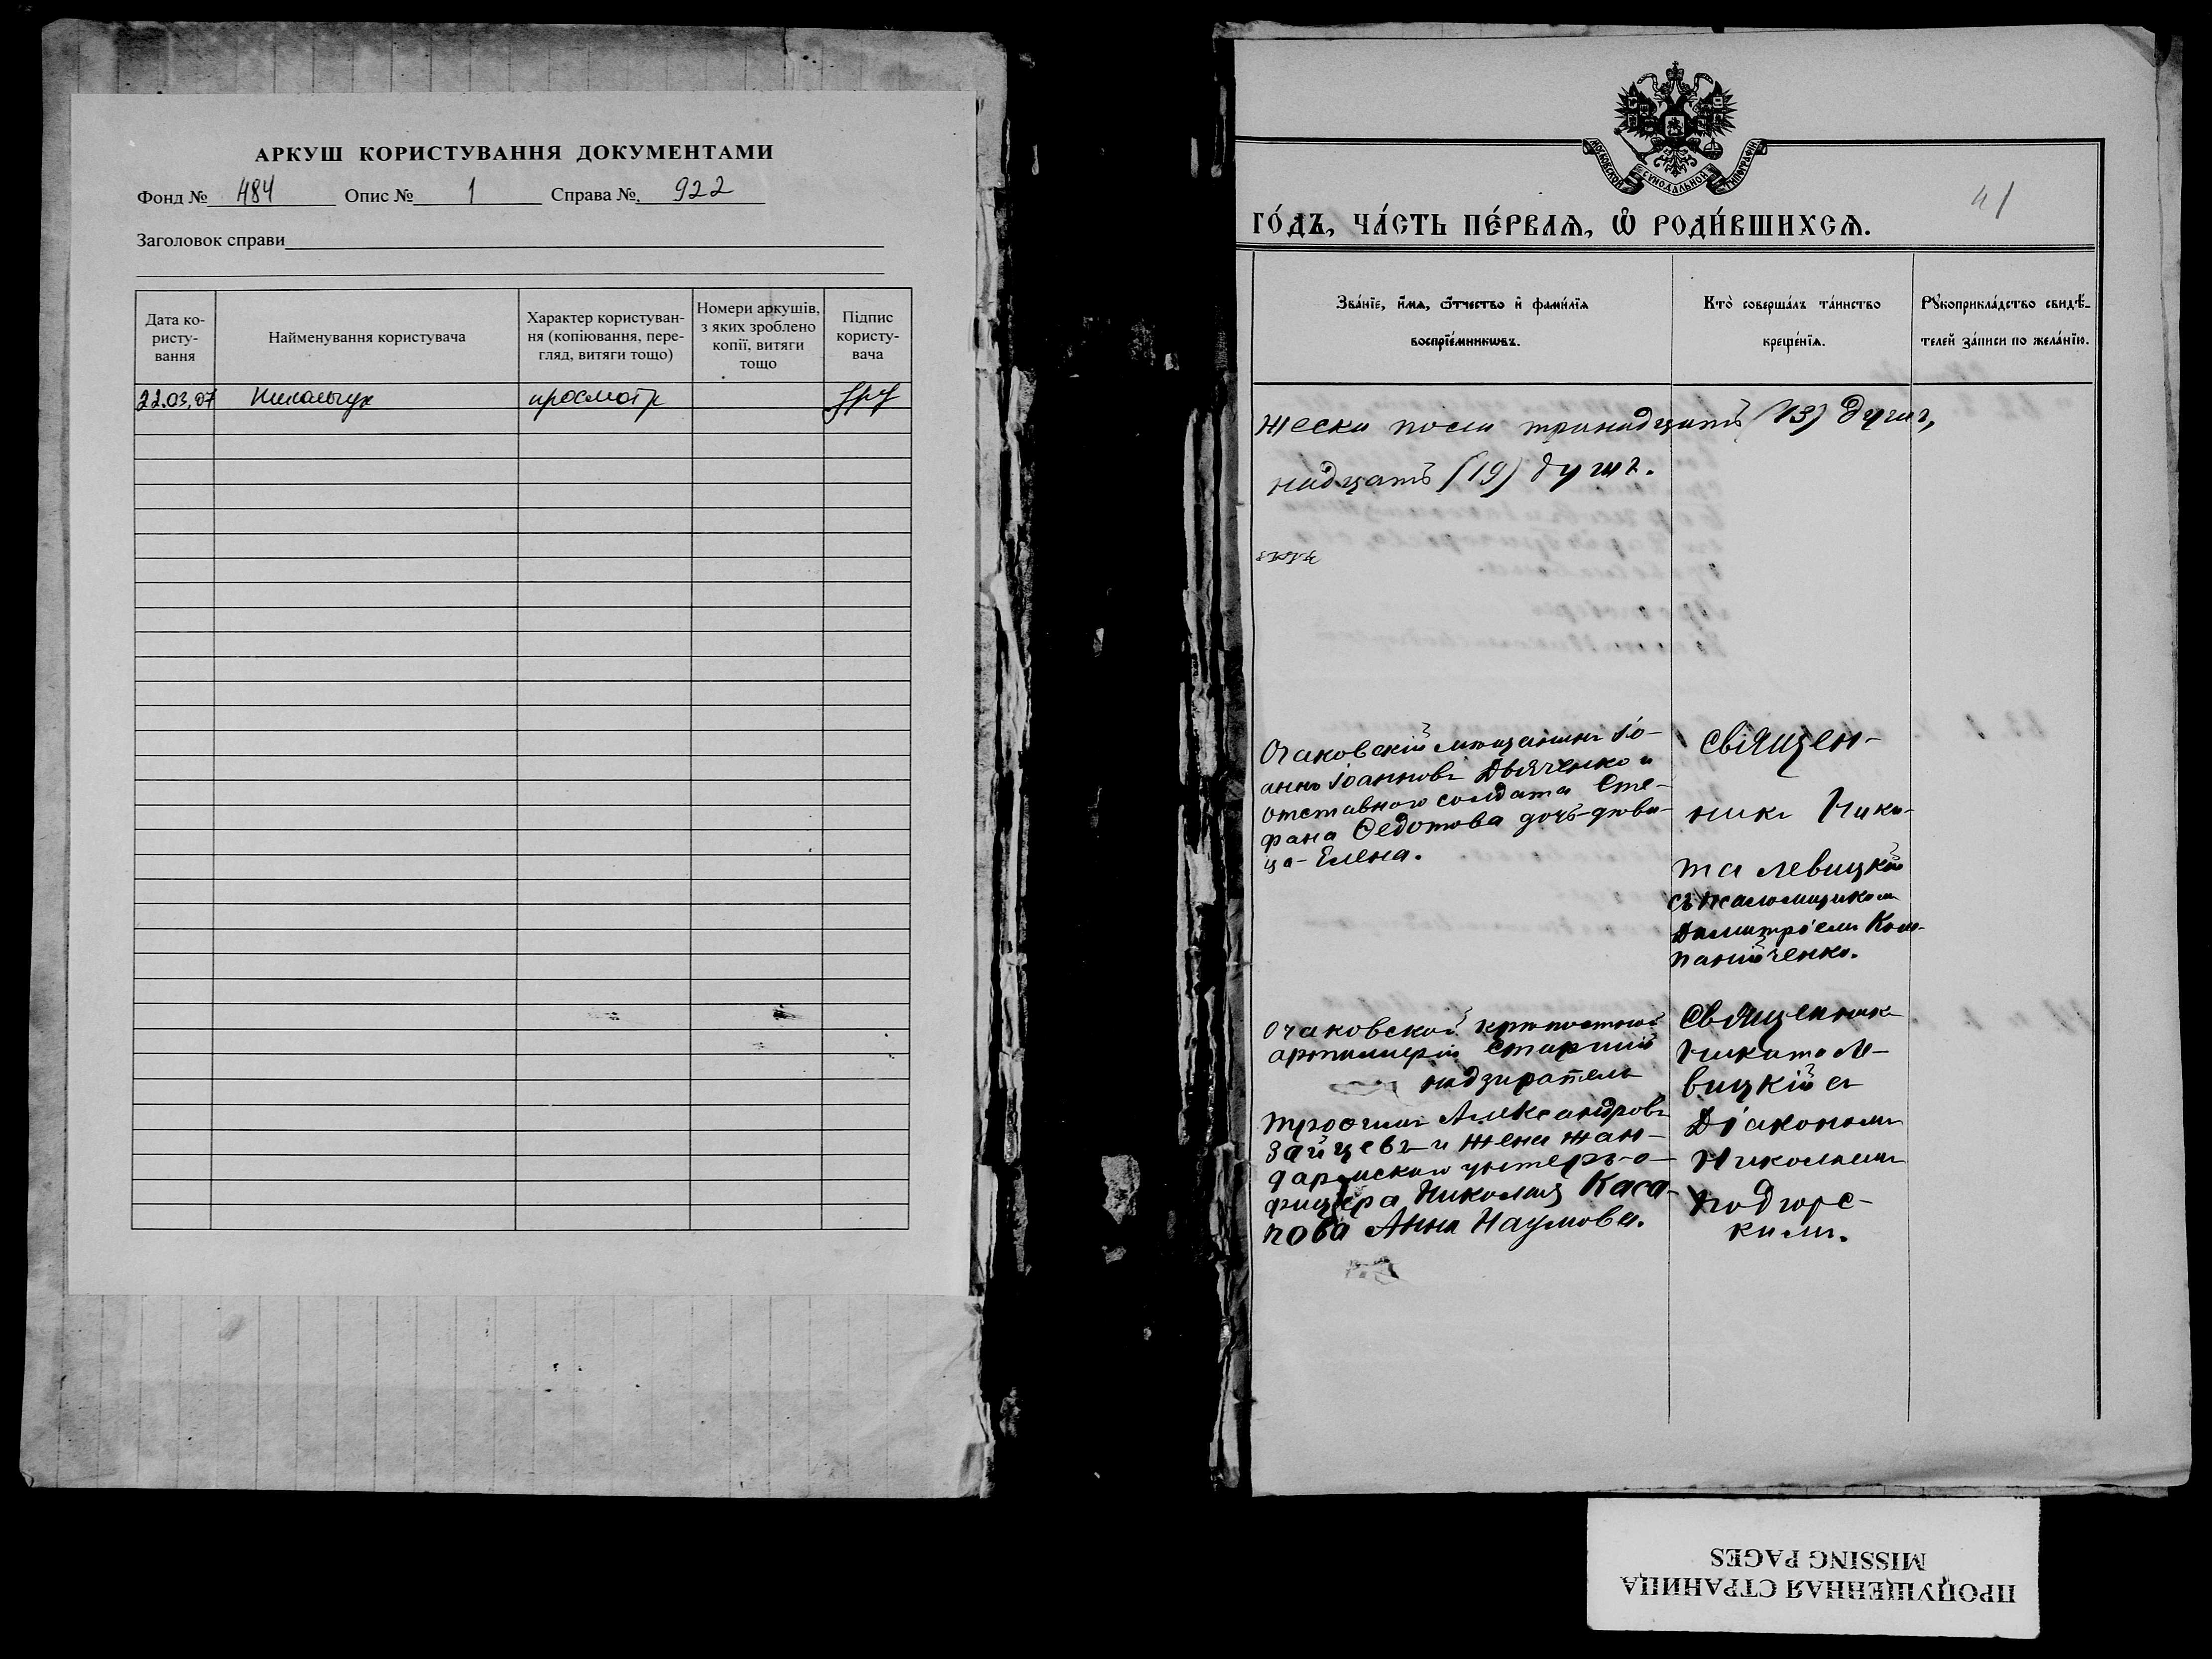 АРКУШ КОРИСТУВАННЯ ДОКУМЕНТАМИ
Фонд № 484 Опис № 1 Справа № 922
Заголовок справи
Дата ко-
ристу-
вання
Найменування користувача
Характер користуван-
ня (копіювання, пере-
гляд, витяги тощо)
Номери аркушів,
з яких зроблено
копії, витяги
тощо
Підпис
користу-
вача
22.03.07 просмотр
МОСКОВСКОЙ СУНОДАЛЬНОЙ ТИПОГРАФІИ
41
ГО́ДЪ, ЧА́СТЬ ПЕ́РВАѦ, Ѽ РОДИ́ВШИХСѦ.
Зва́нїе, и҆́мѧ, ѻ҆́тчество и҆ фами́лїѧ
воспрїе́мникѡвъ.
Кто̀ соверша́лъ та́инство
креще́нїѧ.
Рꙋкоприкла́дство свидѣ́-
телей за́писи по жела́нїю.
жеска пола тринадцать (13) душъ,
надцать (19) душъ.
Очаковскій мѣщанинъ Іо-
аннъ Іоанновъ Дьяченко и
отставного солдата Сте-
фана Ѳедотова дочь-дѣви-
ца- Елена.
Священ-
никъ Ники-
та Левицкій
съ псаломщикомъ
Димитріемъ Ком-
панійченко.
Очаковской крѣпостной
артиллеріи старшій
надзиратель
Трофимъ Александровъ
Зайцевъ и жена жан-
дармскаго унтеръ-о-
фицера Николая Каса-
пова Анна Наумова.
Священникъ
Никита Ле-
вицкій съ
Діакономъ
Николаемъ
Подгорс-
кимъ.
ПРОПУЩЕННАЯ СТРАНИЦА
MISSING PAGES